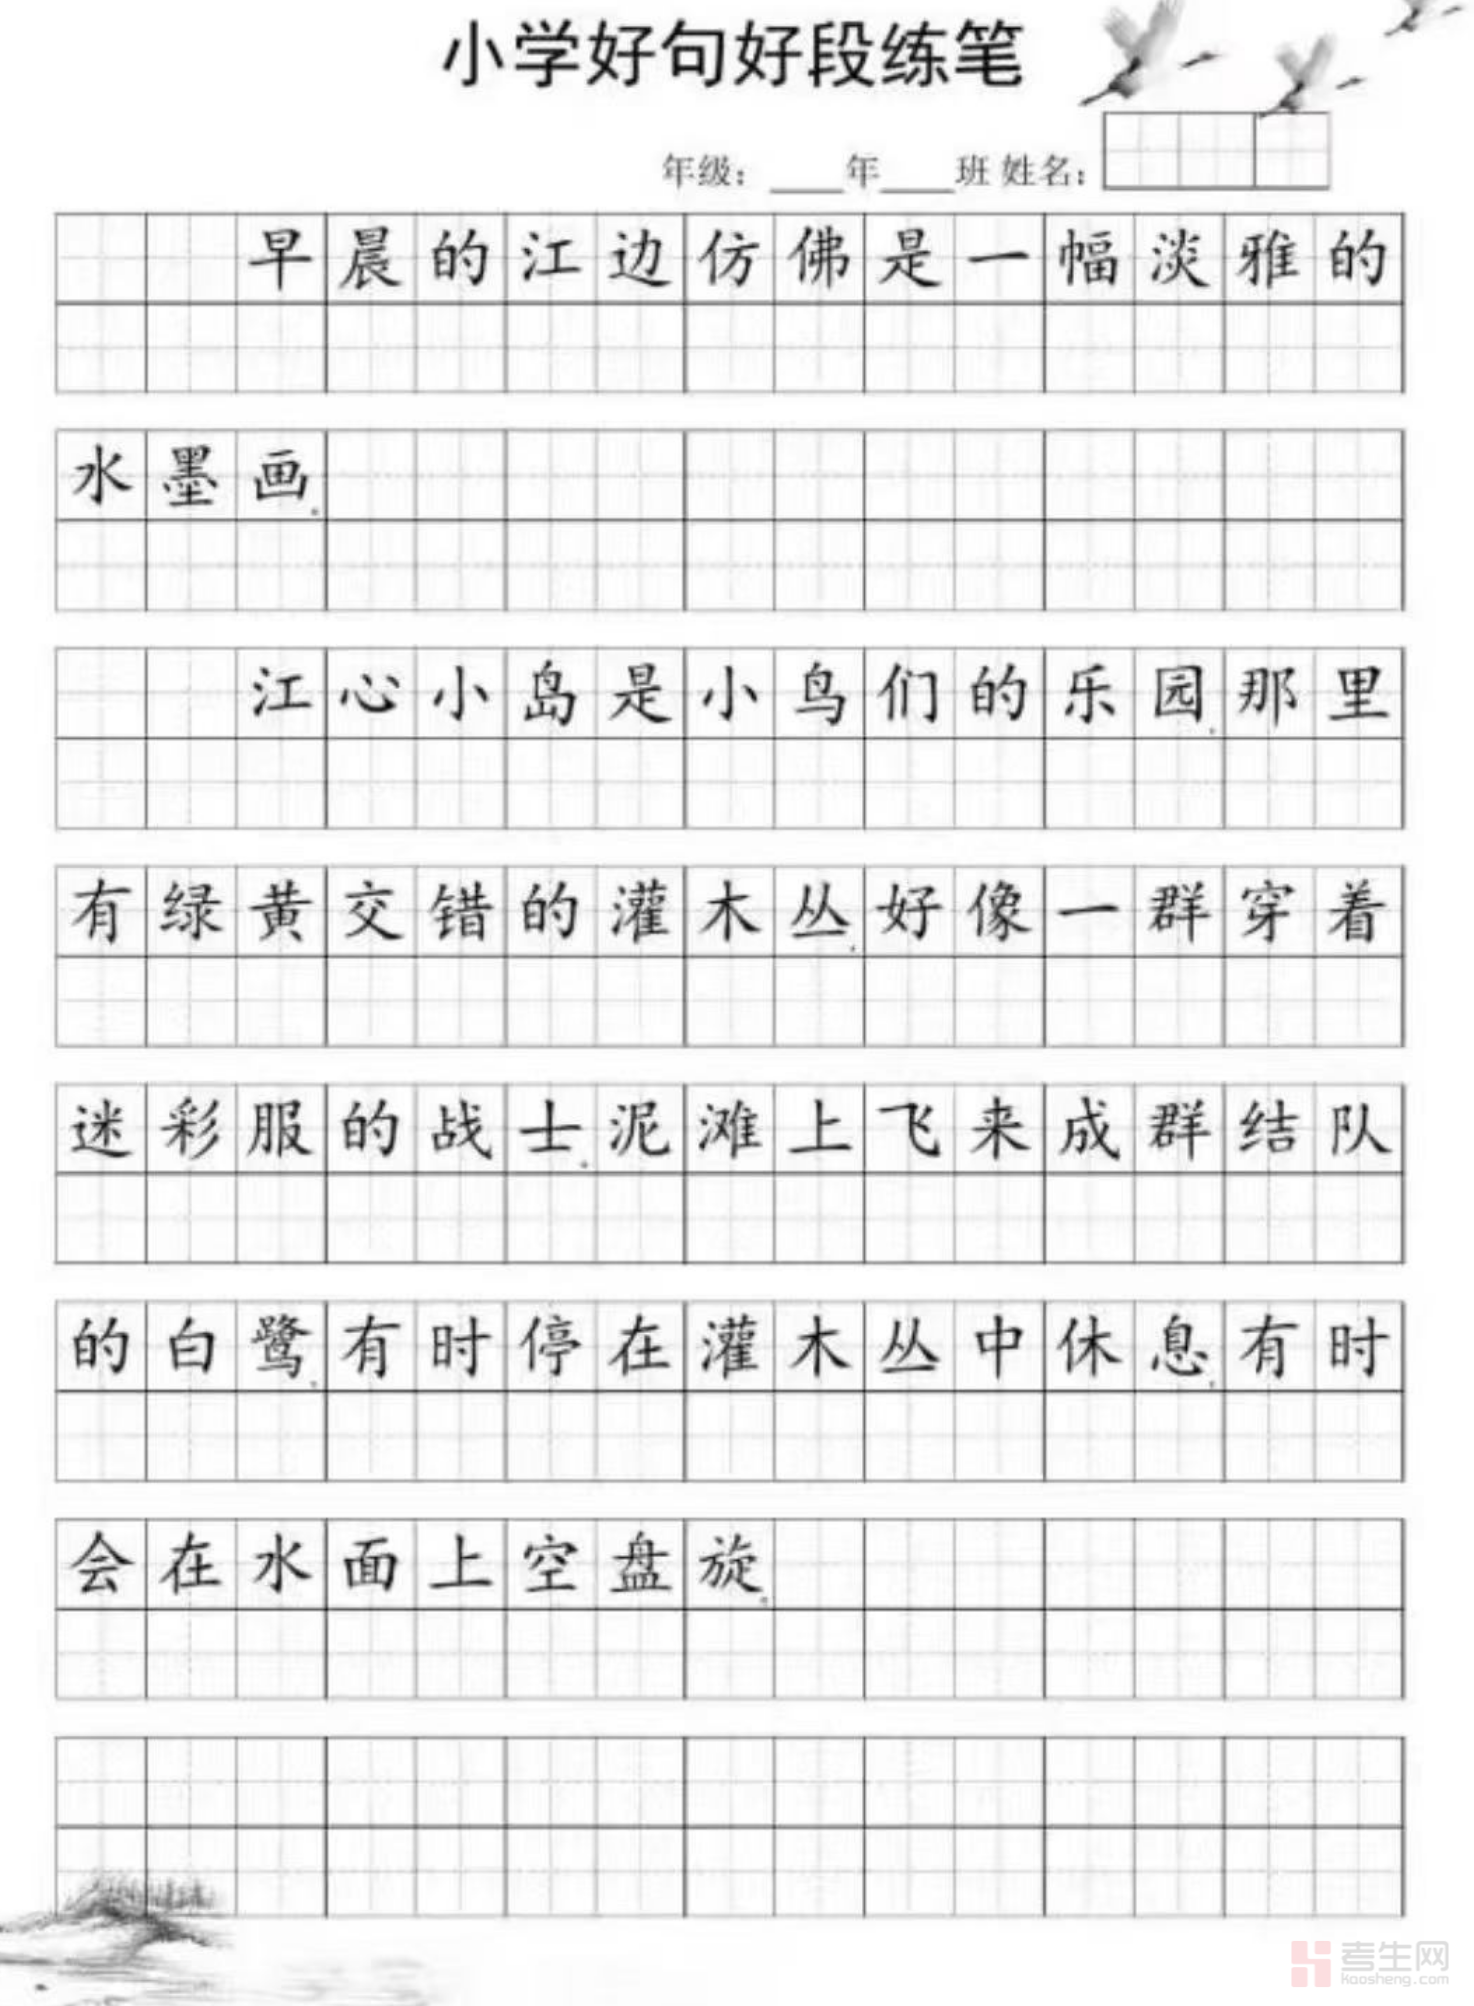 小学好句好段练笔
年级：____年____班 姓名：
早晨的江边仿佛是一幅淡雅的
水墨画。
江心小岛是小鸟们的乐园，那里
有绿黄交错的灌木丛，好像一群穿着
迷彩服的战士。泥滩上飞来成群结队
的白鹭，有时停在灌木丛中休息，有时
会在水面上空盘旋。
考生网
kaosheng.com